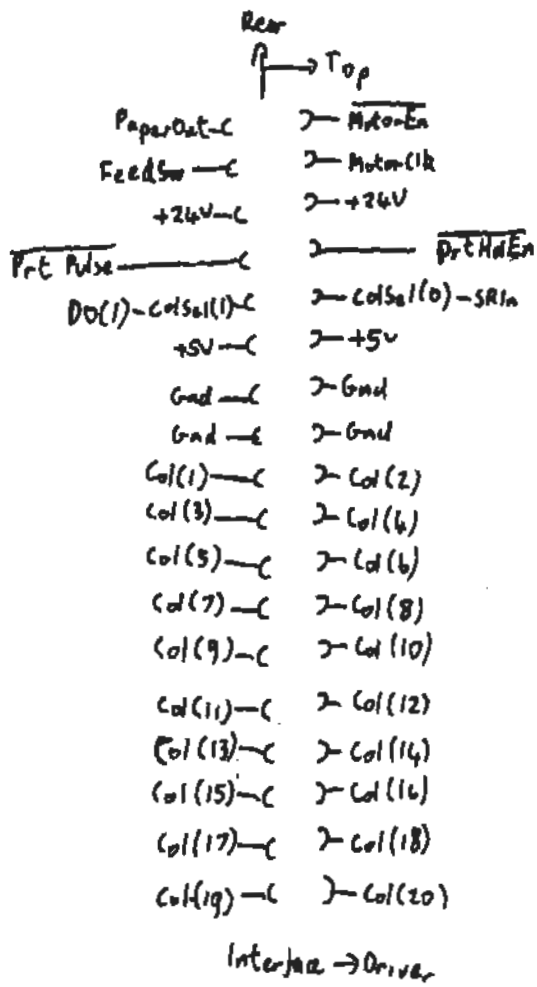 Rear
Top
PaperOut Motor En
FeedSw MotorClk
+24V +24V
Prt Pulse PrtHdEn
D0(1)-ColSel(1) ColSel(0)-SRIn
+5V +5V
Gnd Gnd
Gnd Gnd
Col(1) Col(2)
Col(3) Col(4)
Col(5) Col(6)
Col(7) Col(8)
Col(9) Col(10)
Col(11) Col(12)
Col(13) Col(14)
Col(15) Col(16)
Col(17) Col(18)
Col(19) Col(20)
Interface → Driver